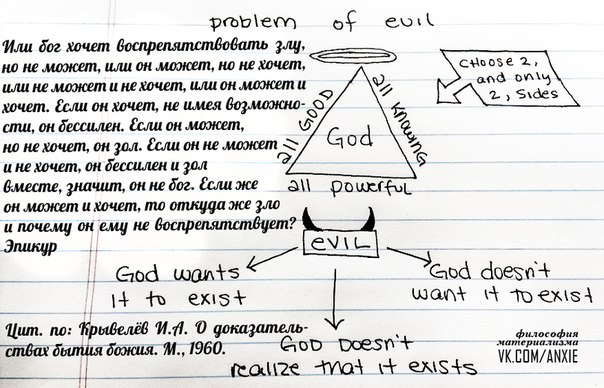 problem of evil
Или бог хочет воспрепятствовать злу,
но не может, или он может, но не хочет,
или не может и не хочет, или он может и
хочет. Если он хочет, не имея возможно-
сти, он бессилен. Если он может,
но не хочет, он зол. Если он не может
и не хочет, он бессилен и зол
вместе, значит, он не бог. Если же
он может и хочет, то откуда же зло
и почему он ему не воспрепятствует?
Эпикур
CHOOSE 2,
and only
2, sides
all GOOD
all knowing
God
all powerful
EVIL
God wants
it to exist
God doesn't
want it to exist
God Doesn't
realize that it exists
Цит. по: Крывелёв И.А. О доказатель-
ствах бытия божия. М., 1960.
философия
материализма
VK.COM/ANXIE